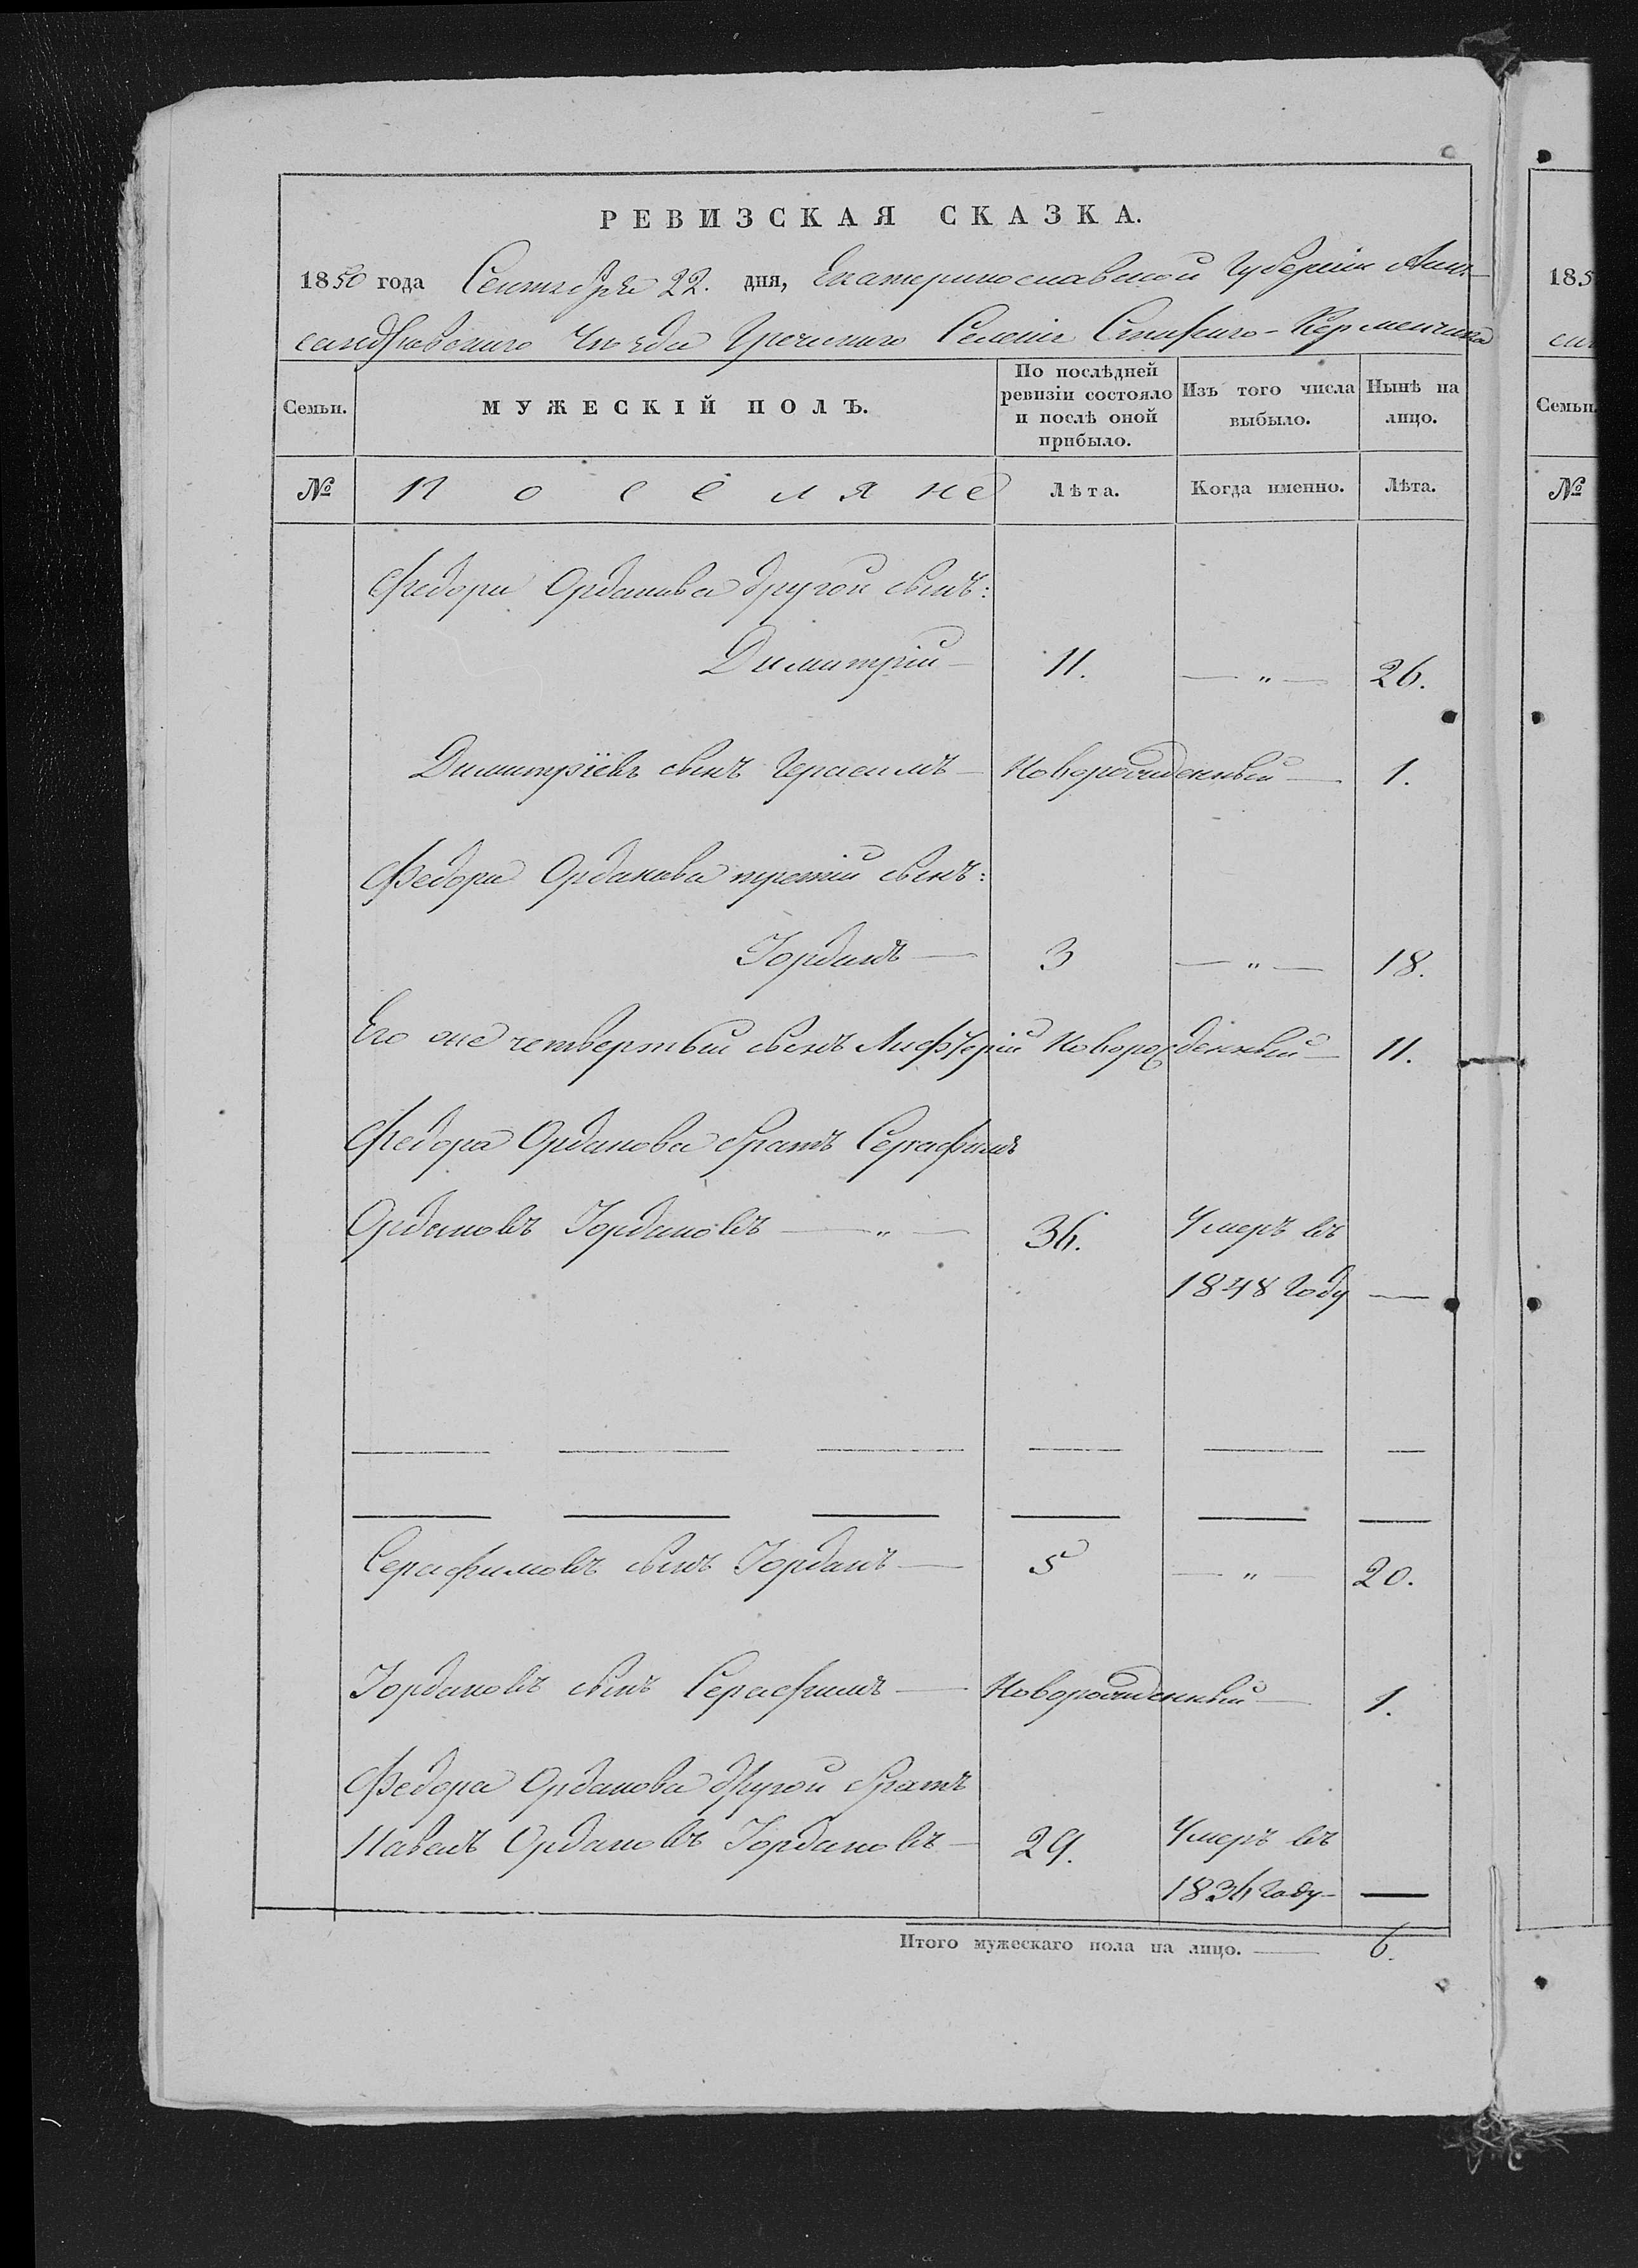 РЕВИЗСКАЯ СКАЗКА.
1850 года Сентября 22. дня, Екатеринославской Губерніи Алек-
сандровскаго Уѣзда Греческаго Селенія Стараго-Керменчика
Семьи.
МУЖЕСКІЙ ПОЛЪ.
По послѣдней ревизіи состояло и послѣ оной прибыло.
Изъ того числа выбыло.
Нынѣ на лицо.
№ Поселяне Лѣта. Когда именно. Лѣта.
Федора Орданова другой сынъ:
Димитрій — 11. — „ — 26.
Димитріевъ сынъ Герасимъ — Новорожденный — 1.
Федора Орданова третій сынъ:
Іорданъ — 3 — „ — 18.
Его же четвертый сынъ Новорожденный — 11.
Федора Орданова братъ Серафимъ
Ордановъ Іордановъ — „ — 36. Умеръ въ
1848 году —
Серафимовъ сынъ Іорданъ — 5 — „ — 20.
Іордановъ сынъ Серафимъ — Новорожденный — 1.
Федора Орданова другой братъ
Павелъ Ордановъ Іордановъ — 29. Умеръ въ
1836 году — —
Итого мужескаго пола на лицо. — 6.
185
са
Семьи.
№